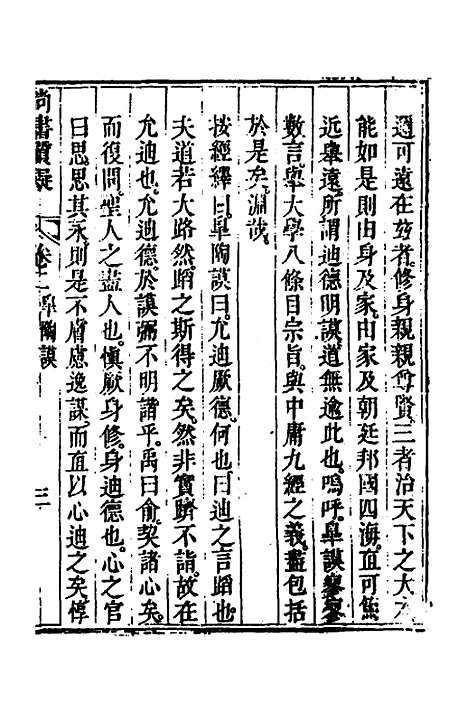 邇可遠在茲者修身親親尊賢三者治天下之大
能如是則由身及家由家及朝廷邦國四海直可無
近舉遠所謂迪德明謨道無逾此也嗚呼皐謨寥寥
數言與大學八條目宗旨與中庸九經之義盡包括
於是矣淵哉
按經繹曰皐陶謨曰允迪厥德何也曰迪之言蹈也
夫道若大路然蹈之斯得之矣然非實躋不詣故在
允迪也允迪德於謨弼不明諧乎禹曰俞契諸心矣
而復問聖人之盡人也慎厥身修身迪德也心之官
曰思思其永則是不膚慮逸謀而直以心迪之矣惇
尚書質疑 卷二 皐陶謨 三